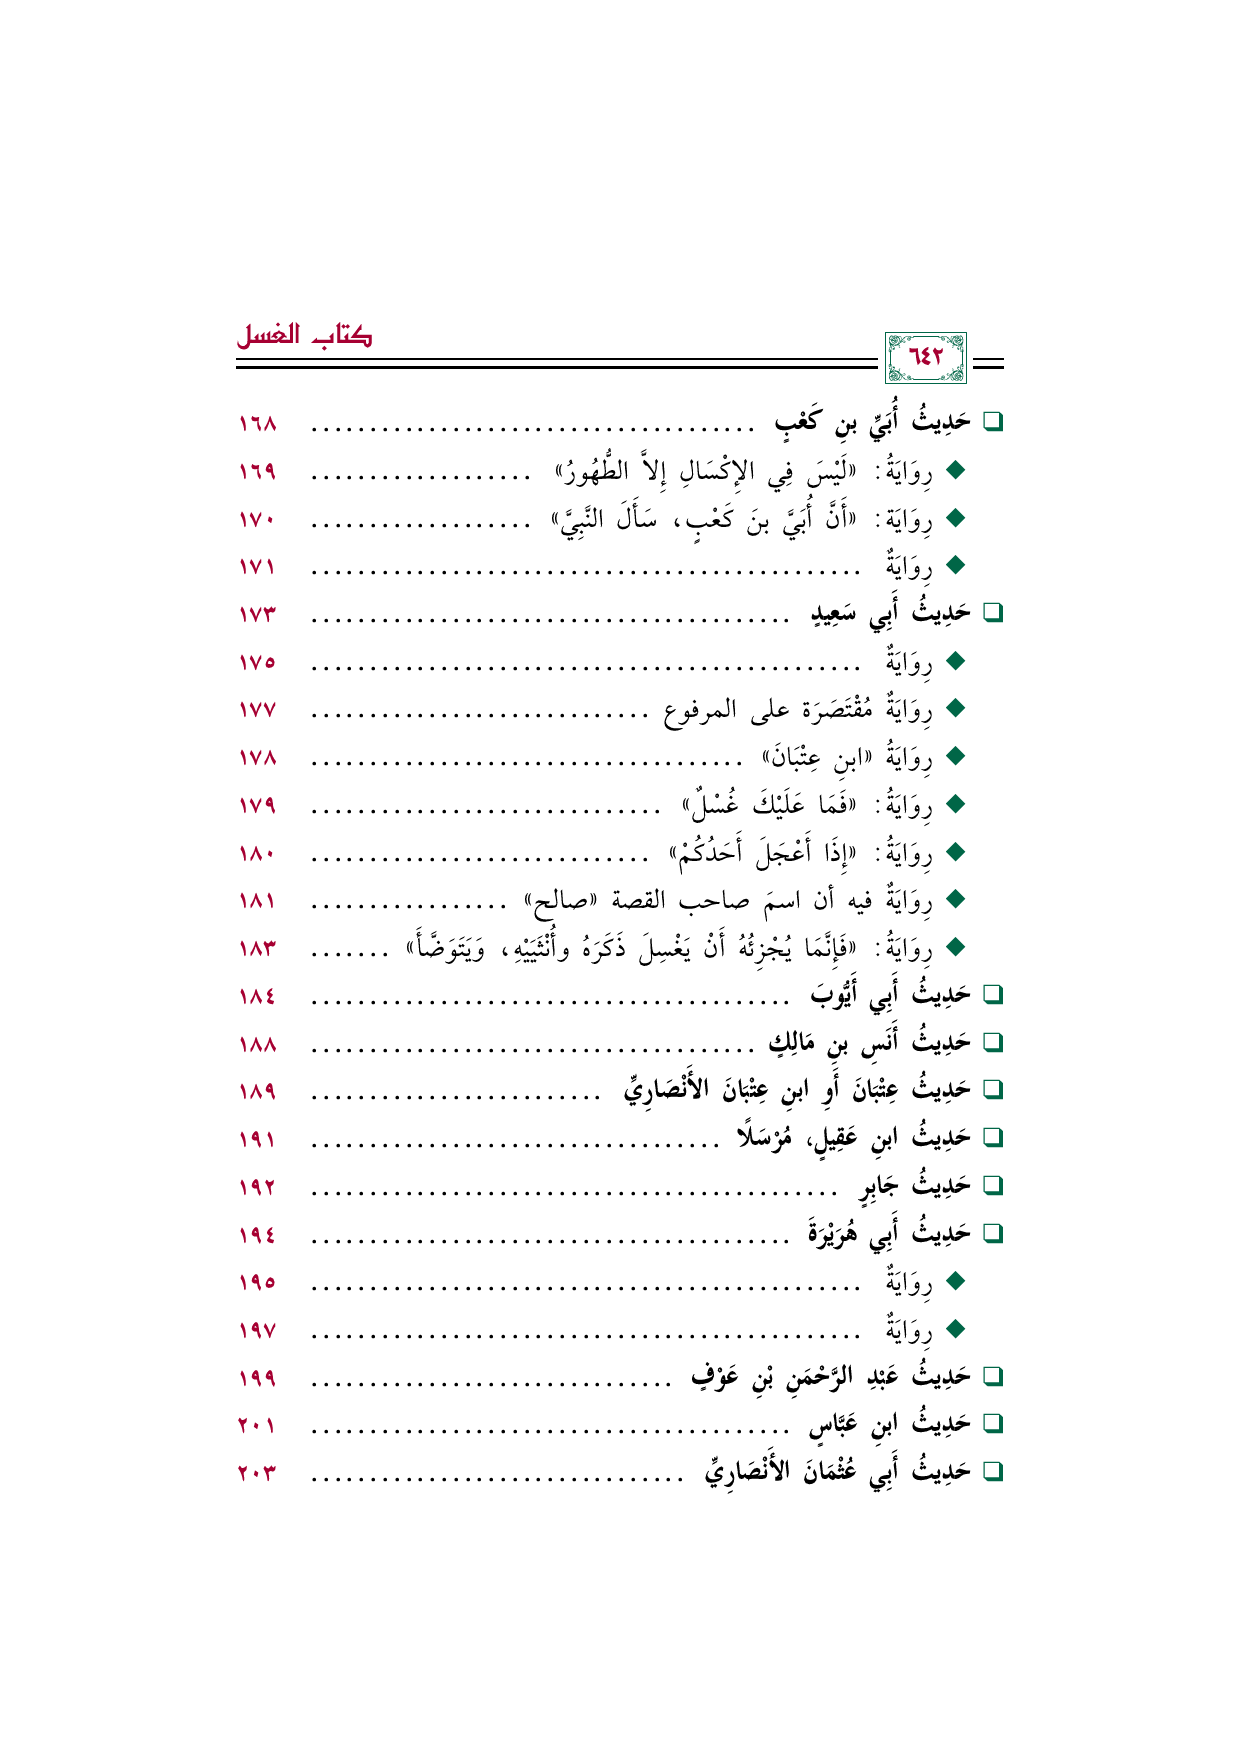 كتاب الغسل
٦٤٢
❑ حَدِيثُ أُبَيِّ بنِ كَعْبٍ ...................................... ١٦٨
◆ رِوَايَةُ: «لَيْسَ فِي الإِكْسَالِ إِلاَّ الطُّهُورُ» ................... ١٦٩
◆ رِوَايَة: «أَنَّ أُبَيَّ بنَ كَعْبٍ، سَأَلَ النَّبِيَّ» ................... ١٧٠
◆ رِوَايَةٌ ............................................... ١٧١
❑ حَدِيثُ أَبِي سَعِيدٍ ......................................... ١٧٣
◆ رِوَايَةٌ ............................................... ١٧٥
◆ رِوَايَةٌ مُقْتَصَرَة على المرفوع ............................. ١٧٧
◆ رِوَايَةُ «ابنِ عِتْبَانَ» ..................................... ١٧٨
◆ رِوَايَةُ: «فَمَا عَلَيْكَ غُسْلٌ» .............................. ١٧٩
◆ رِوَايَةُ: «إِذَا أَعْجَلَ أَحَدُكُمْ» ............................. ١٨٠
◆ رِوَايَةٌ فيه أن اسمَ صاحب القصة «صالح» ................. ١٨١
◆ رِوَايَةُ: «فَإِنَّمَا يُجْزِئُهُ أَنْ يَغْسِلَ ذَكَرَهُ وأُنْثَيَيْهِ، وَيَتَوَضَّأَ» ....... ١٨٣
❑ حَدِيثُ أَبِي أَيُّوبَ ......................................... ١٨٤
❑ حَدِيثُ أَنَسِ بنِ مَالِكٍ ...................................... ١٨٨
❑ حَدِيثُ عِتْبَانَ أَوِ ابنِ عِتْبَانَ الأَنْصَارِيِّ ......................... ١٨٩
❑ حَدِيثُ ابنِ عَقِيلٍ، مُرْسَلًا ................................... ١٩١
❑ حَدِيثُ جَابِرٍ ............................................. ١٩٢
❑ حَدِيثُ أَبِي هُرَيْرَةَ ......................................... ١٩٤
◆ رِوَايَةٌ ............................................... ١٩٥
◆ رِوَايَةٌ ............................................... ١٩٧
❑ حَدِيثُ عَبْدِ الرَّحْمَنِ بْنِ عَوْفٍ ............................... ١٩٩
❑ حَدِيثُ ابنِ عَبَّاسٍ ......................................... ٢٠١
❑ حَدِيثُ أَبِي عُثْمَانَ الأَنْصَارِيِّ ................................ ٢٠٣